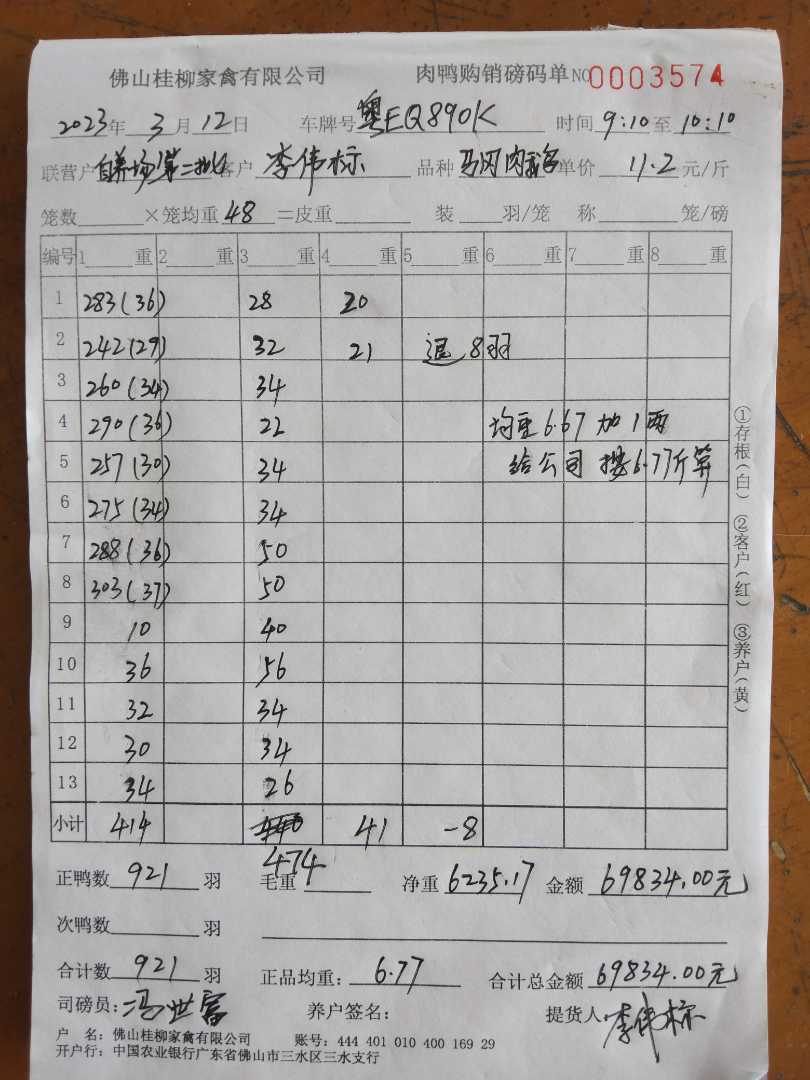 佛山桂柳家禽有限公司 肉鸭购销磅码单 NO 0003574
2023年 3月 12日 车牌号 粤EQ890K 时间 9:10 至 10:10
联营户 自养场(第二批) 客户 李伟标 品种 马冈肉 单价 11.2 元/斤
笼数 ×笼均重 48 =皮重 装 羽/笼 称 笼/磅
编号 1 重 2 重 3 重 4 重 5 重 6 重 7 重 8 重
1 283(36) 28 20
2 242(29) 32 21 退8羽
3 260(34) 34
4 290(36) 22 均重6.67加1两
5 257(30) 34 给公司按6.77斤算
6 275(34) 34
7 288(36) 50
8 303(37) 50
9 10 40
10 36 56
11 32 34
12 30 34
13 34 26
小计 414 41 -8
474
正鸭数 921 羽 毛重 净重 6235.17 金额 69834.00元
次鸭数 羽
合计数 921 羽 正品均重: 6.77 合计总金额 69834.00元
司磅员: 冯世富 养户签名: 提货人: 李伟标
户 名: 佛山桂柳家禽有限公司 账号: 444 401 010 400 169 29
开户行: 中国农业银行广东省佛山市三水区三水支行
①存根(白) ②客户(红) ③养户(黄)